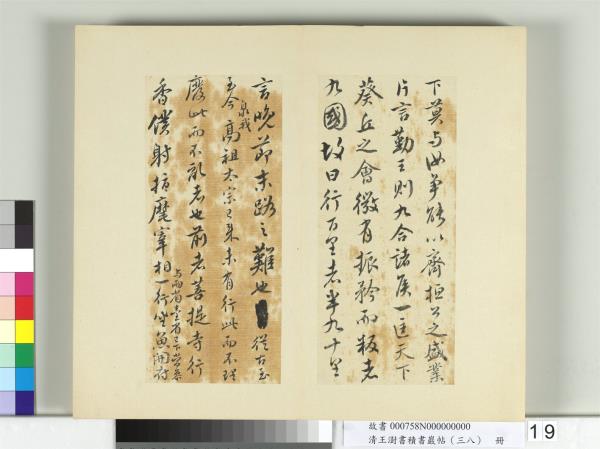 下莫与汝争能以齊桓公之盛業
片言勤王則九合諸侯一匡天下
葵丘之會微有振矜而叛者
九國故曰行百里者半九十里
言晚節末路之難也從古至
至今泉我高祖太宗已来未有行此而不理
廢此而不亂者也前者菩提寺行
香僕射指麾宰相
与兩省臺省已下常参
一行坐魚開府
故書 000758N000000000
清王澍書積書巖帖（三八） 冊
19